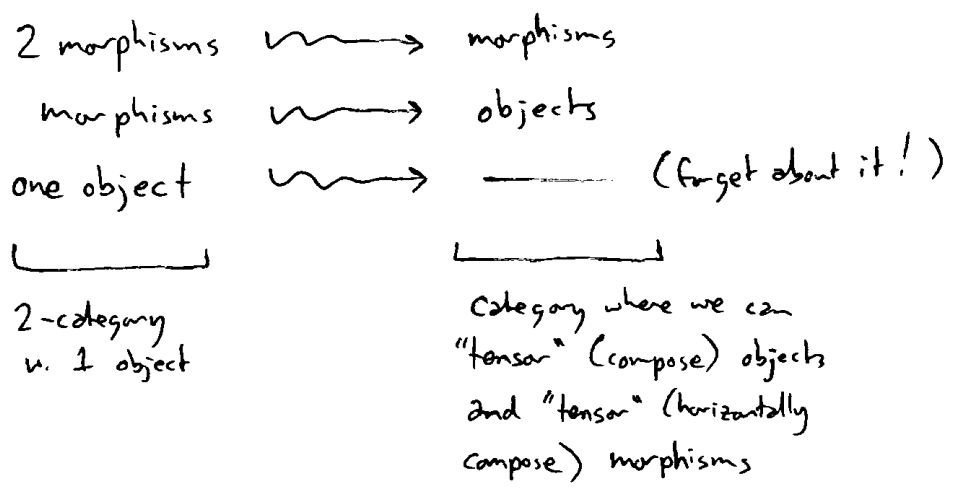 2 morphisms morphisms
morphisms objects
one object — (forget about it!)
2-category
w. 1 object
category where we can
"tensor" (compose) objects
and "tensor" (horizontally
compose) morphisms